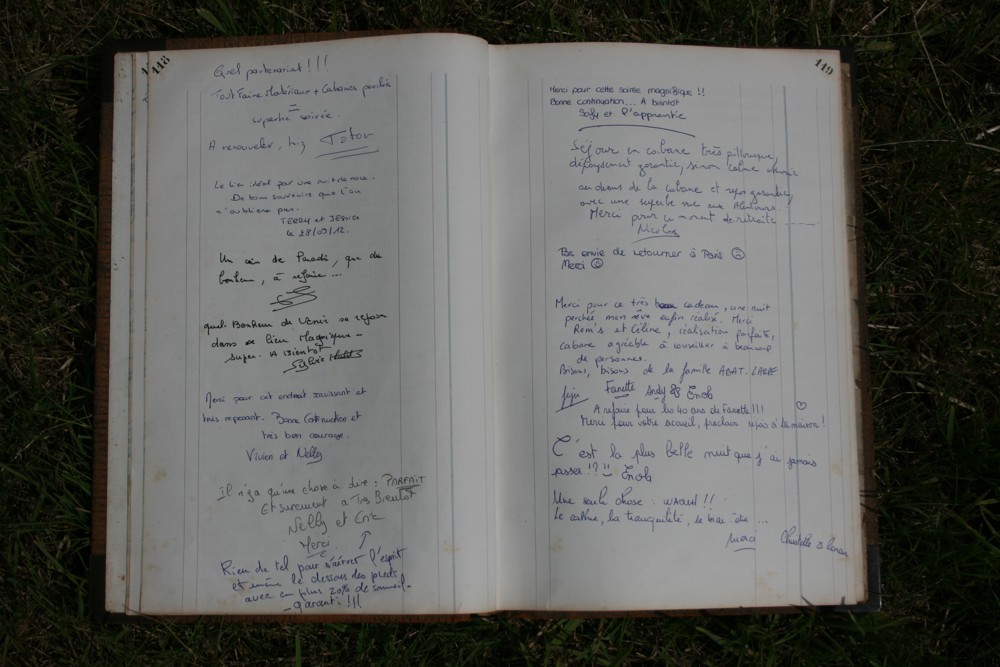 118
Quel partenariat !!!
Tout Faire Matériaux + Cabanes perchée
=
superbe soirée.
A renouveler, biz Tétou
Le lieu idéal pour une nuit de noce.
De bons souvenirs que l'on
n'oubliera pas.
TERRY et JESSICA
le 28/09/12.
Un coin de Paradis, que du
bonheur, à refaire ...
quel Bonheur de venir se reposer
dans ce lieu Magique -
super. A Bientot
Sylvie
Merci pour cet endroit ravissant et
très reposant. Bonne Continuation et
très bon courage.
Vivien et Nelly
Il n'y a qu'une chose à dire : PARFAIT
Et surement a Très Bientot
Nelly et Eric
Merci
Rien de tel pour s'aérer l'esprit
et même le dessous des pieds
avec en plus 20% de sommeil -
- garanti !!!
119
Merci pour cette soirée magnifique !!
Bonne continuation... A bientôt
Sofy et l'apprentie
Séjour en cabane très pittoresque,
dépaysement garantie, sinon calme
au dessus de la cabane et repos garantie,
avec une superbe vue aux Alentours.
Merci pour ce moment de retraite
Nicolas
Pas envie de retourner à Paris ☹
Merci ☺
Merci pour ce très beau cadeau, une nuit
perchée mon rêve enfin réalisé. Merci
Rem's et Céline, réalisation parfaite,
cabane agréable à conseiller à beaucoup
de personnes.
Bisous, bisous de la famille ABAT-LARRE
Juju Fanette Andy Enola
A refaire pour les 40 ans de Fanette !!! ♡
Merci pour votre accueil, prochain repas à la maison !
C'est la plus belle nuit que j'ai jamais
passer !? Enola
Une seule chose : WAOUH !!
Le calme, la tranquilité, le bien être ...
Merci Christelle